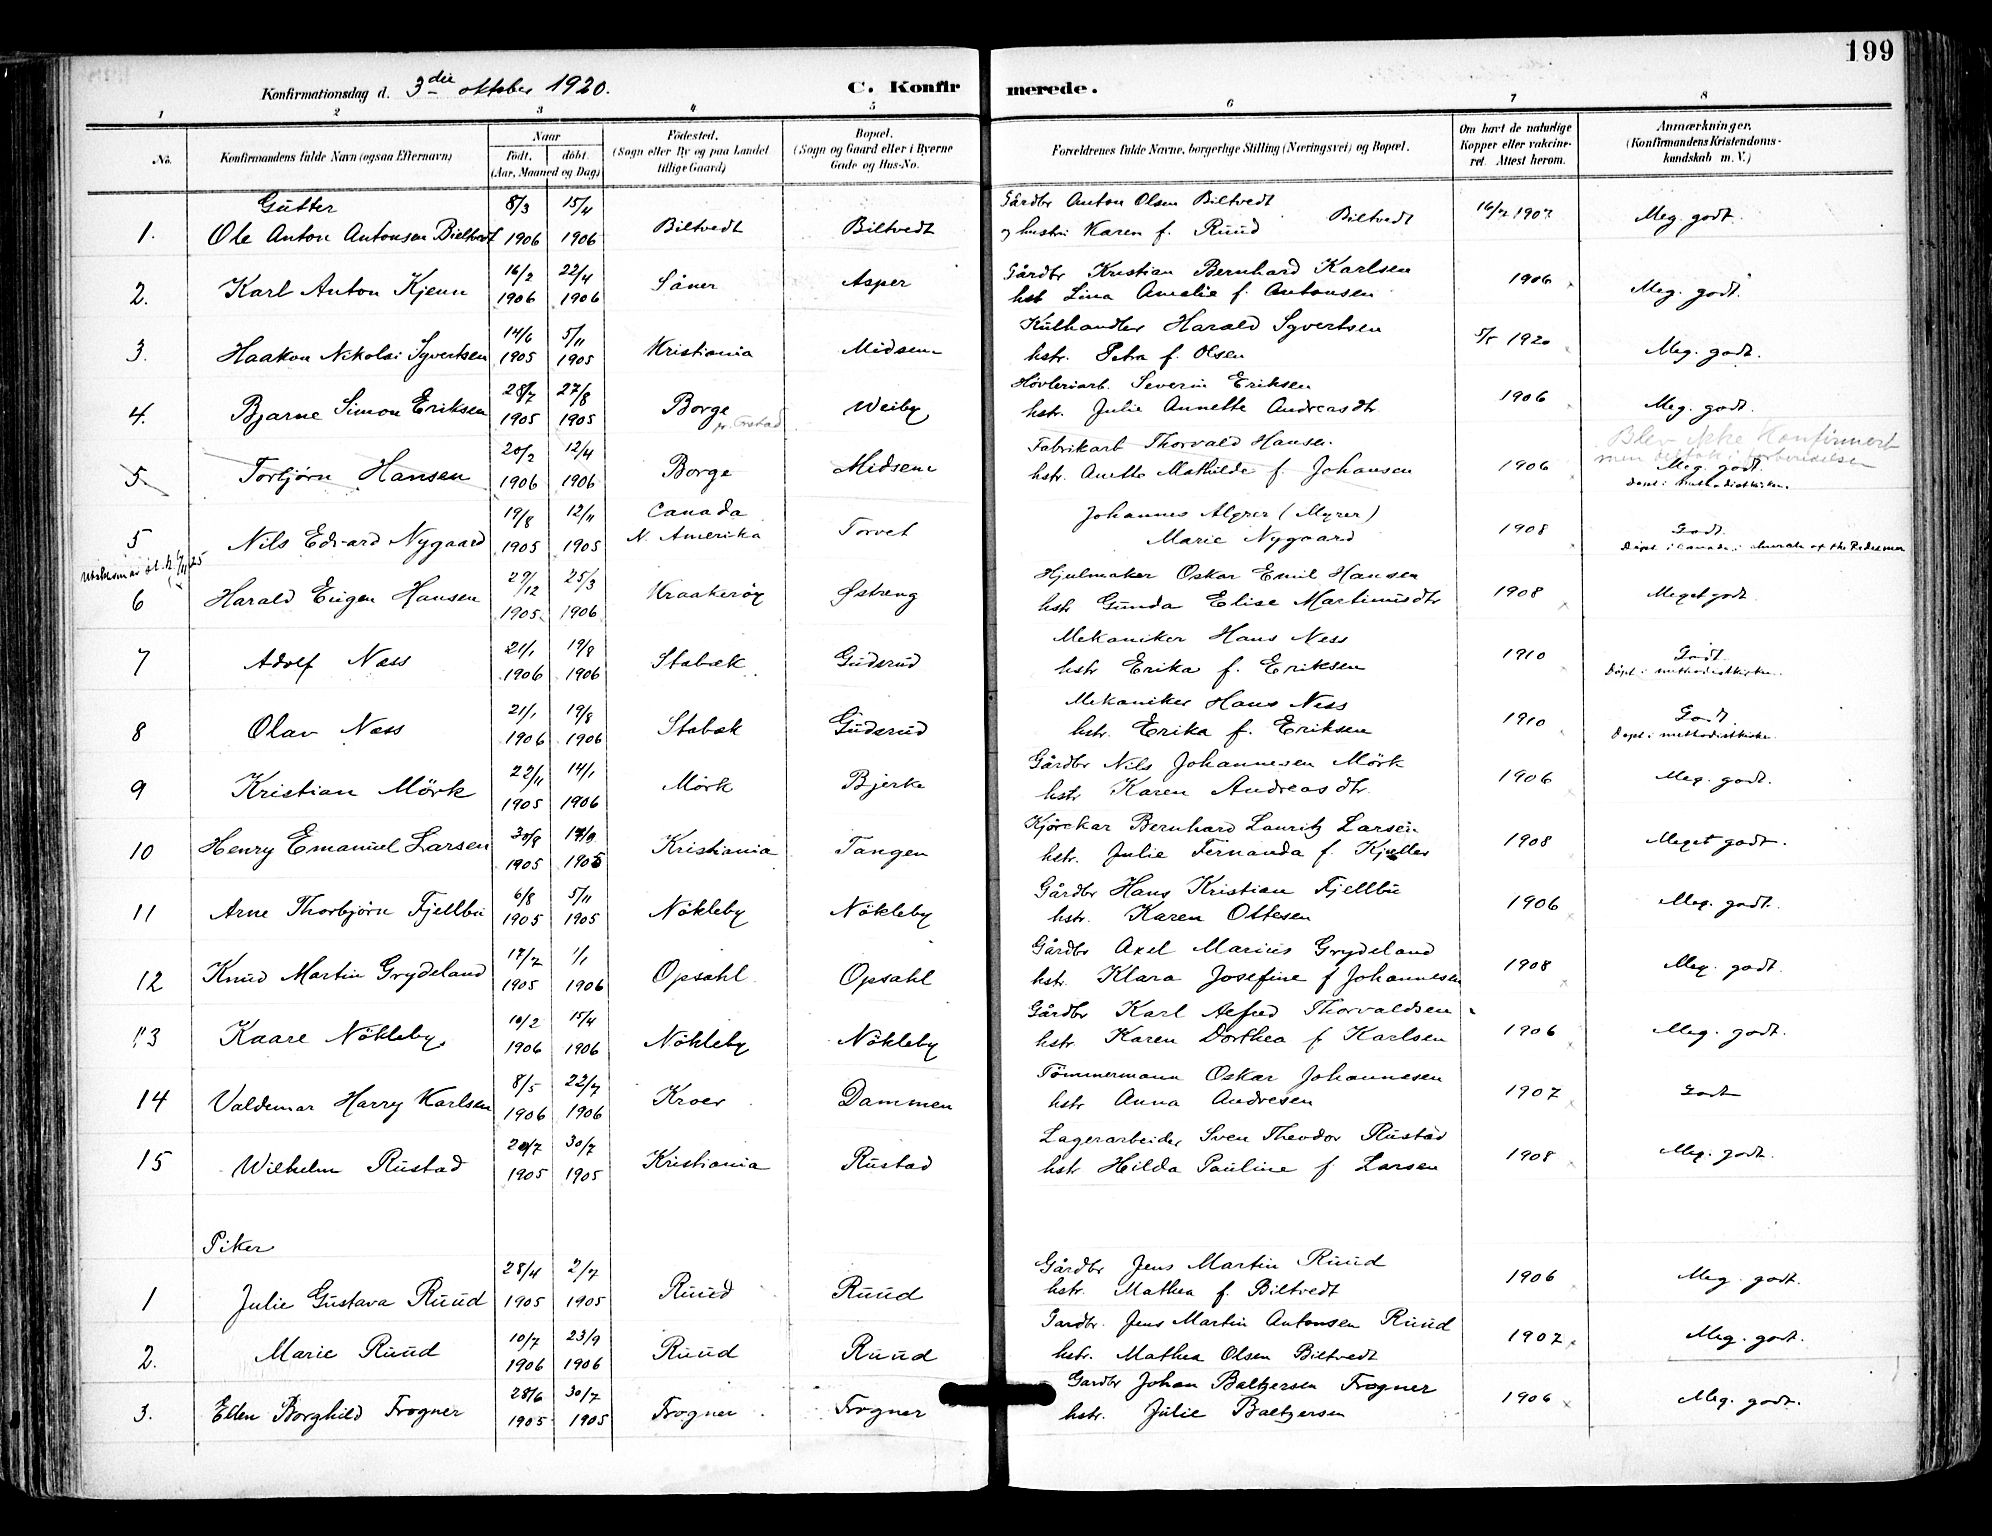 199
Konfirmationsdag d. 3die oktober 1920. C. Konfirmerede.
1 2 3 4 5 6 7 8
No. Konfirmandens fulde Navn (ogsaa Efternavn) Naar födt, döbt. (Aar, Maaned og Dag) Födested. (Sogn eller By og paa Landet tillige Gaard) Bopæl. (Sogn og Gaard eller i Byerne Gade og Hus-No. Forældrenes fulde Navne, borgerlige Stilling (Næringsvei) og Bopæl. Om havt de naturlige Kopper eller vakcineret. Attest herom. Anmærkninger. (Konfirmandens Kristendomskundskab m. V.)
Gutter 8/3 15/4 Gårdbr Anton Olsen Biltvedt
1. Ole Anton Antonsen Bieltvedt 1906 1906 Biltvedt Biltvedt og hustru Karen f. Ruud Biltvedt 1907 Meg. godt.
16/2 22/4 Gårdbr Kristian Bernhard Karlsen
2. Karl Anton Kjenn 1906 1906 Såner Asper hst Lina Amalie f. Antonsen 1906 Meg. godt.
14/6 5/11 Kulhandler Harald Syvertsen
3. Haakon Nikolai Syvertsen 1905 1905 Kristiania Midsem hstr. Petra f. Olsen 5/5 1920 Meg. godt.
28/7 27/8 Høvleriarb. Severin Eriksen
4. Bjarne Simon Eriksen 1905 1905 Borge Weiby hstr. Julie Annette Andreasdtr. 1906 Meg. godt.
20/2 12/4 Fabrikarb Thorvald Hansen Blev ikke Konfirmert men deltok i forberedelse
5 Torbjørn Hansen 1906 1906 Borge Midsem hstr. Anette Mathilde f. Johansen 1906 Meg. godt.
Døpt i methodistkirken.
19/8 12/11 Canada Johannes Algrer (Myrer)
5 Nils Edvard Nygaard 1905 1905 N. Amerika Torvet Marie Nygaard 1908 Godt.
Døpt i Canada i Church of the Redeemer
29/12 25/3 Hjulmaker Oskar Emil Hansen
6 Harald Eugen Hansen 1905 1906 Kraakerøy Østreng hstr Gunda Elise Martinusdtr 1908 Meget godt
21/1 19/8 Mekaniker Hans Ness
7 Adolf Næss 1906 1906 Stabæk Guderud hstr Erika f. Eriksen 1910 Godt.
Døpt i methodistkirken.
21/1 19/8 Mekaniker Hans Ness
8 Olav Næss 1906 1906 Stabæk Guderud hstr. Erika f. Eriksen 1910 Godt.
Døpt i methodistkirke.
22/11 14/1 Gårdbr Nils Johannesen Mörk
9 Kristian Mörk 1905 1906 Mörk Bjerke hstr Karen Andreasdtr. 1906 Meg. godt.
30/8 Kjörekar Bernhard Lauritz Larsen
10 Henry Emanuel Larsen 1905 1905 Kristiania Tangen hstr. Julie Fernanda f. Kjeller 1908 Meget godt.
6/8 5/11 Gårdbr Hans Kristian Fjellbu
11 Arne Thorbjörn Fjellbu 1905 1905 Nökleby Nökleby hstr. Karen Ottesen 1906 Meg. godt.
17/7 1/1 Gårdbr Axel Marius Grydeland
12 Knud Martin Grydeland 1905 1906 Opsahl Opsahl hstr. Klara Josefine f Johannesen 1908 Meg. godt.
10/2 15/4 Gårdbr Karl Alfred Thorvaldsen
13 Kaare Nökleby 1906 1906 Nökleby Nökleby hstr. Karen Dorthea f Karlsen 1906 Meg. godt.
8/5 22/7 Tömmermann Oskar Johannesen
14 Valdemar Harry Karlsen 1906 1906 Kroer Dammen hstr Anna Andresen 1907 Godt
20/7 30/7 Lagerarbeider Sven Theodor Rustad
15 Wilhelm Rustad 1905 1905 Kristiania Rustad hstr Hilda Pauline f Larsen 1908 Meg. godt.
Piker
28/4 2/7 Gårdbr Jens Martin Ruud
1 Julie Gustava Ruud 1905 1905 Ruud Ruud hstr. Mathea f. Biltvedt 1906 Meg. godt.
10/7 23/9 Gardbr. Jens Martin Antonsen Ruud
2. Marie Ruud 1906 1906 Ruud Ruud hstr. Mathea Olsen Biltvedt 1907 Meg. godt.
28/6 30/7 Gardbr Johan Baltzersen Frogner
3. Ellen Borghild Frogner 1905 1905 Frogner Frogner hstr. Julie Baltzersen 1906 Meg. godt.